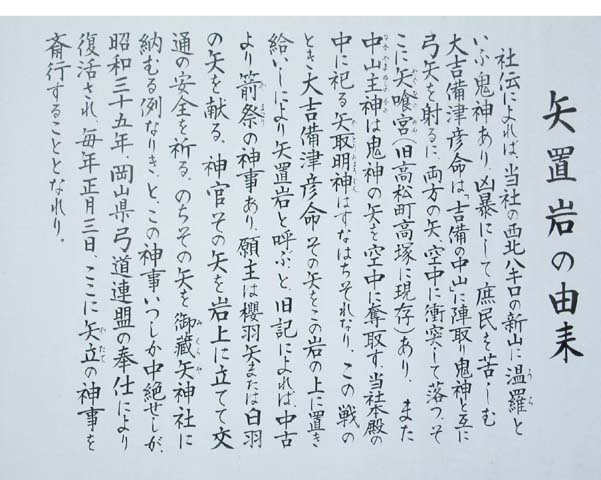 矢置岩の由来
社伝によれば、当社の西北八キロの新山に温羅と
いふ鬼神あり、凶暴にして庶民を苦しむ
大吉備津彦命は「吉備の中山」に陣取り鬼神と互に
弓矢を射るに、両方の矢、空中に衝突して落つ、そ
こに矢喰宮(旧高松町高塚に現存)あり、また
中山主神は鬼神の矢を空中に奪取す、当社本殿の
中に祀る矢取明神はすなはちそれなり、この戦の
とき大吉備津彦命その矢をこの岩の上に置き
給いしにより矢置岩と呼ぶ、と、旧記によれば中古
より箭祭の神事あり、願主は櫻羽矢または白羽
の矢を献る、神官その矢を岩上に立てて交
通の安全を祈る、のちその矢を御蔵矢神社に
納むる例なりき、と、この神事いつしか中絶せしが、
昭和三十五年、岡山県弓道連盟の奉仕により
復活され、毎年正月三日、ここに矢立の神事を
斎行することとなれり。